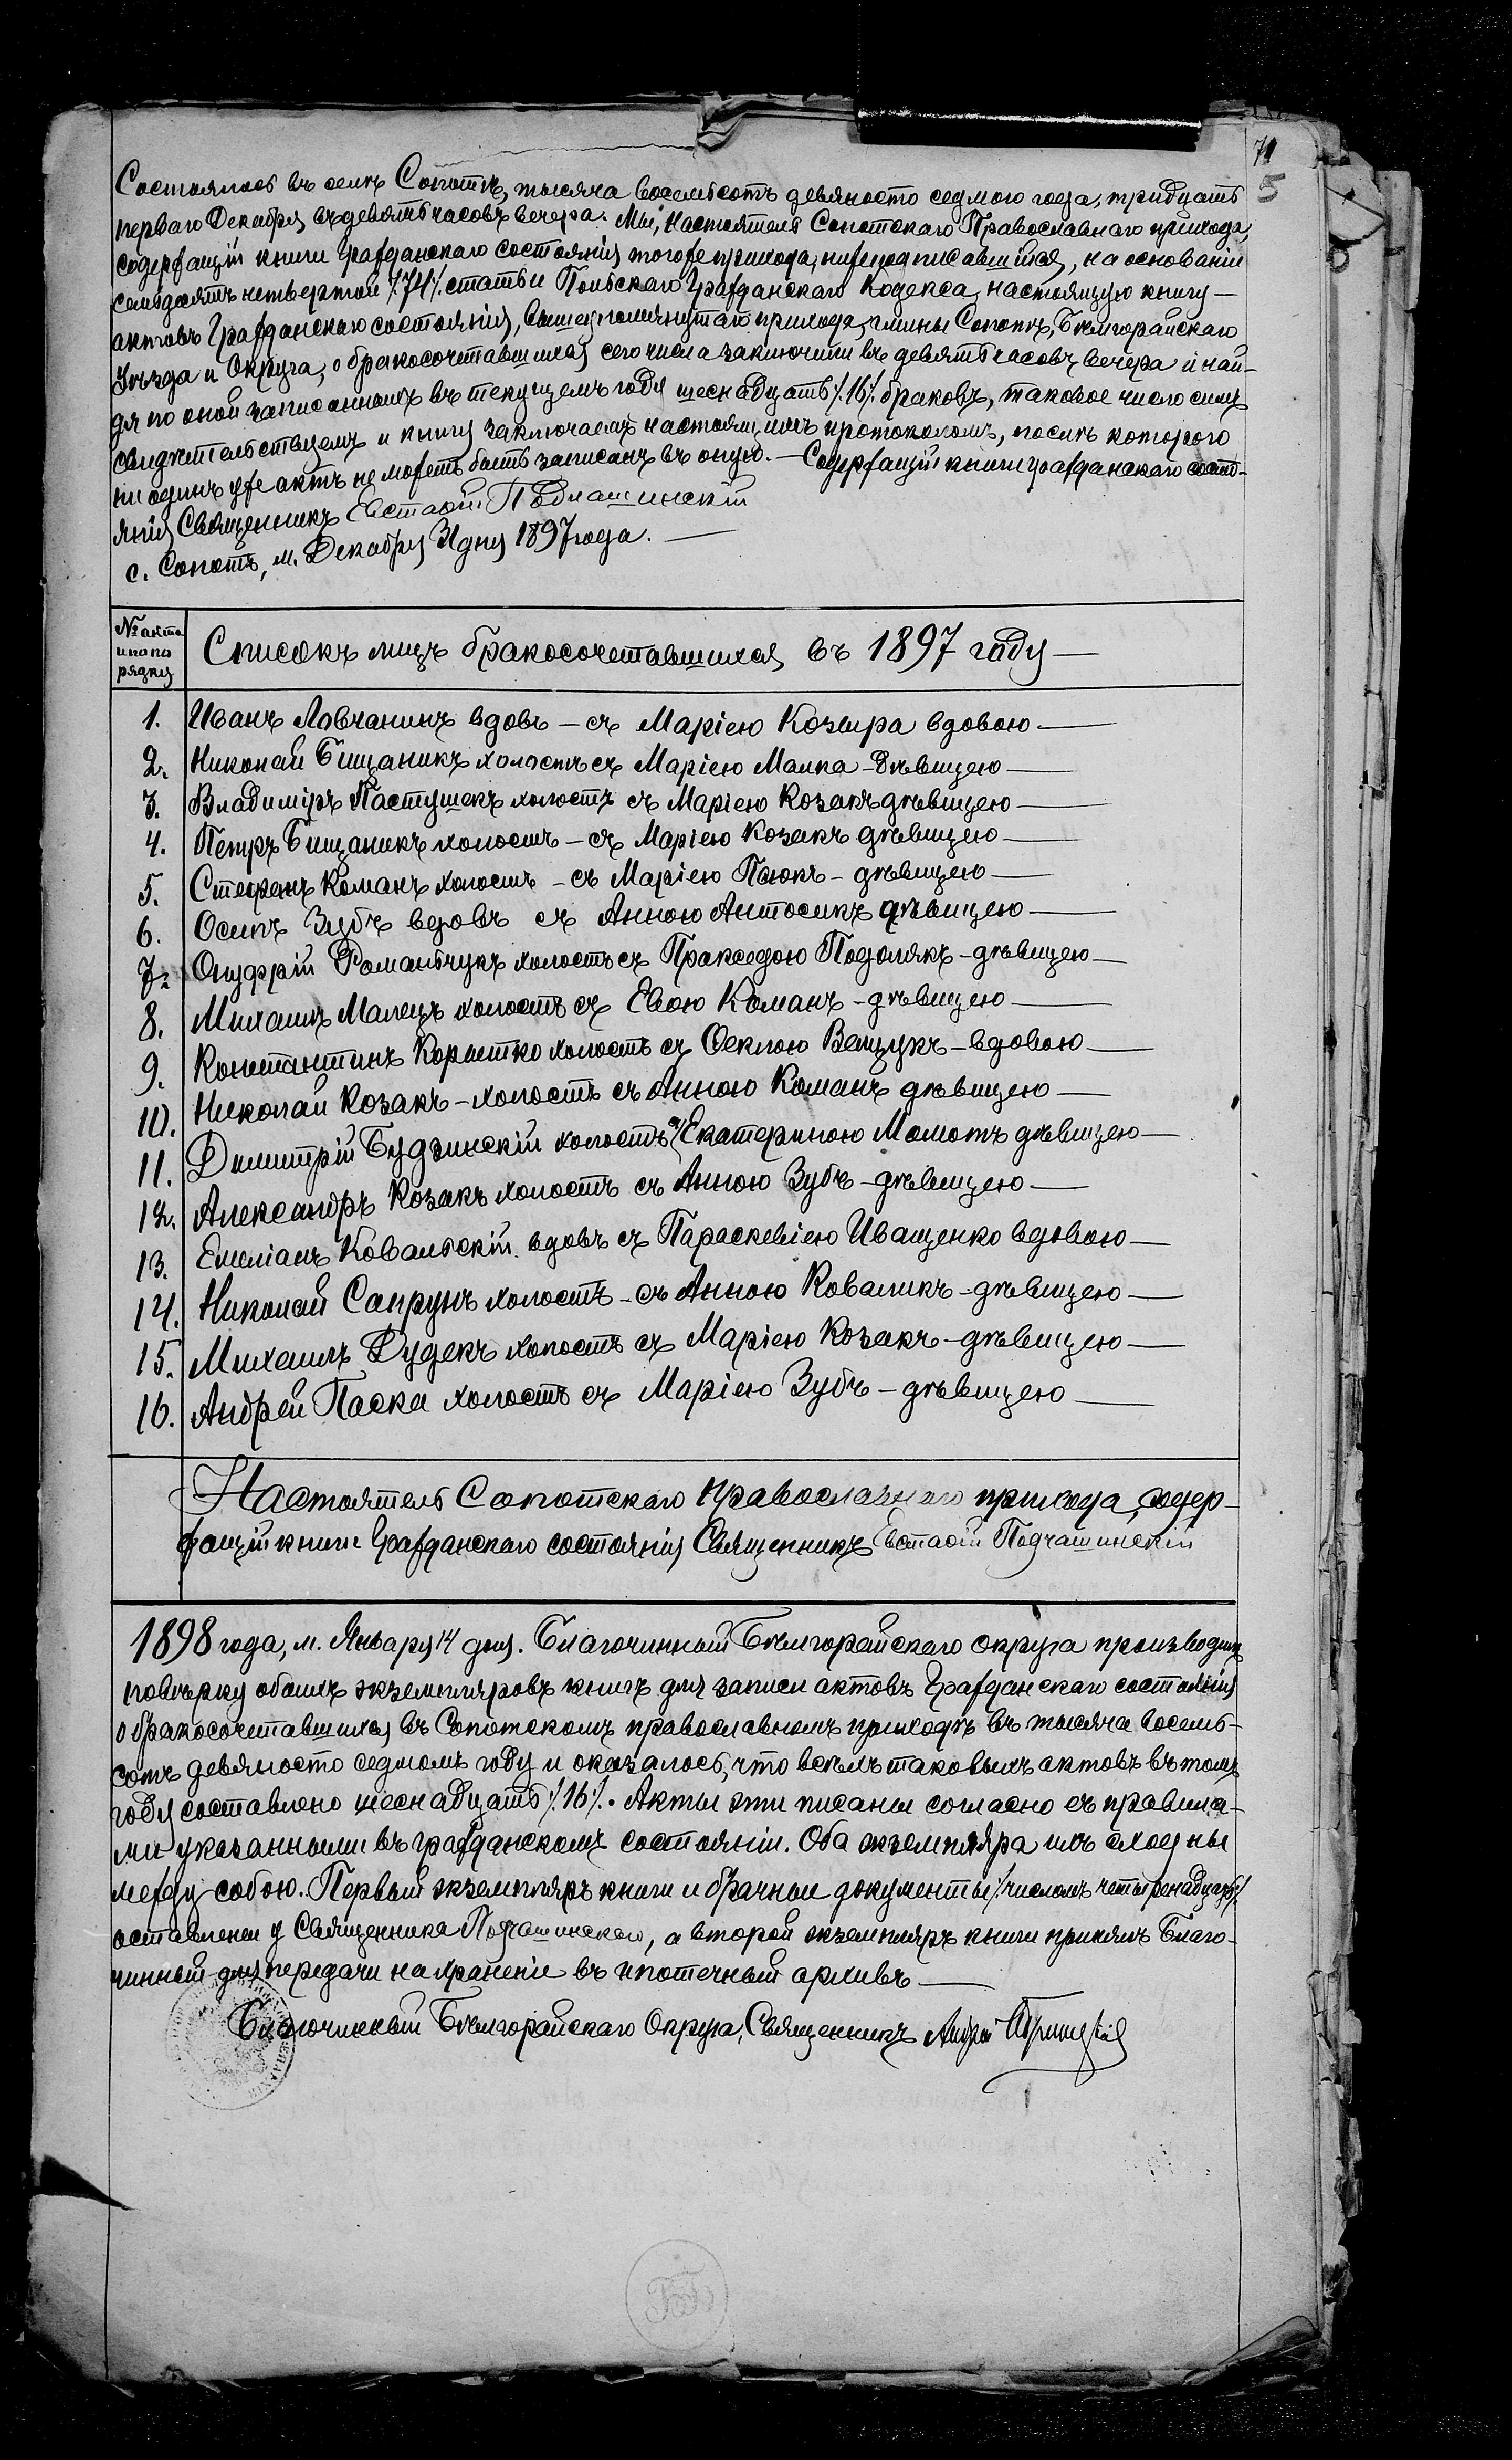 71
5
Состоялось въ селѣ Сопотѣ, тысяча восемьсотъ девяносто седмого года, тридцать
перваго Декабря, въ девять часовъ вечера. Мы, Настоятель Сопотскаго Православнаго прихода,
содержащій книги Гражданскаго состоянія тогоже прихода, нижеподписавшійся, на основаніи
семьдесятъ четвертой /:74:/ статьи Польскаго Гражданскаго Кодекса, настоящую книгу —
актовъ Гражданскаго состоянія, вышеупомянутаго прихода, гмины Сопотъ, Бѣлгорайскаго
Уѣзда и Округа, о бракосочетавшихся сего числа заключили въ девять часовъ вечера и най-
дя по оной записанныхъ въ текущемъ году шеснадцать /:16:/ браковъ, таковое число симъ
свидѣтельствуемъ и книгу заключаемъ настоящимъ протоколомъ, послѣ котораго
ни одинъ уже актъ не можетъ быть записанъ въ оную. — Содержащій книги гражданскаго состо-
янія Священникъ Евстафій Подгашинскій
с. Сопотъ, м. Декабря 31 дня 1897 года. —
№ акта
и по по
рядку
Списокъ лицъ бракосочетавшихся въ 1897 году —
1. Иванъ Ловчанинъ вдовъ — съ Маріею Козыра вдовою —
2. Николай Бищаникъ холостъ съ Маріею Малка — дѣвицею —
3. Владиміръ Пастушекъ холостъ съ Маріею Козакъ дѣвицею —
4. Петръ Бищаникъ холостъ — съ Маріею Козакъ дѣвицею —
5. Стефанъ Команъ холостъ — съ Маріею Паюкъ — дѣвицею —
6. Осипъ Зубъ вдовъ съ Анною Антосикъ дѣвицею —
7. Онуфрій Романьчукъ холостъ съ Пракседою Подолякъ — дѣвицею —
8. Михаилъ Малецъ холостъ съ Евою Команъ — дѣвицею —
9. Константинъ Корытко холостъ съ Феклою Ващукъ — вдовою —
10. Николай Козакъ — холостъ съ Анною Команъ дѣвицею —
11. Димитрій Будзинскій холостъ съ Екатериною Момотъ дѣвицею —
12. Александръ Козакъ холостъ съ Анною Зубъ — дѣвицею —
13. Емеліанъ Ковальскій вдовъ съ Параскевіею Иващенко вдовою —
14. Николай Сапрунъ холостъ — съ Анною Коваликъ — дѣвицею —
15. Михаилъ Дудекъ холостъ съ Маріею Козакъ — дѣвицею —
16. Андрей Паска холостъ съ Маріею Зубъ — дѣвицею —
Настоятель Сопотскаго Православнаго прихода, содер-
жащій книги Гражданскаго состоянія Священникъ Евстафій Подгашинскій
1898 года, м. Января 14 дня. Благочинный Бѣлгорайскаго округа производилъ
повѣрку обоихъ экземпляровъ книгъ для записи актовъ Гражданскаго состоянія
о бракосочетавшихся въ Сопотскомъ православномъ приходѣ въ тысяча восемь-
сотъ девяносто седмомъ году и оказалось, что всѣхъ таковыхъ актовъ въ томъ
году составлено шеснадцать /:16:/. Акты эти писаны согласно съ правила-
ми указанными въ гражданскомъ состояніи. Оба экземпляра ихъ сходны
между собою. Первый экземпляръ книги и брачные документы /:числомъ четыренадцать:/
оставлены у Священника Подгашинскаго, а второй экземпляръ книги принялъ Благо-
чинный для передачи на храненіе въ ипотечный архивъ —
Благочинный Бѣлгорайскаго Округа, Священникъ Андрей